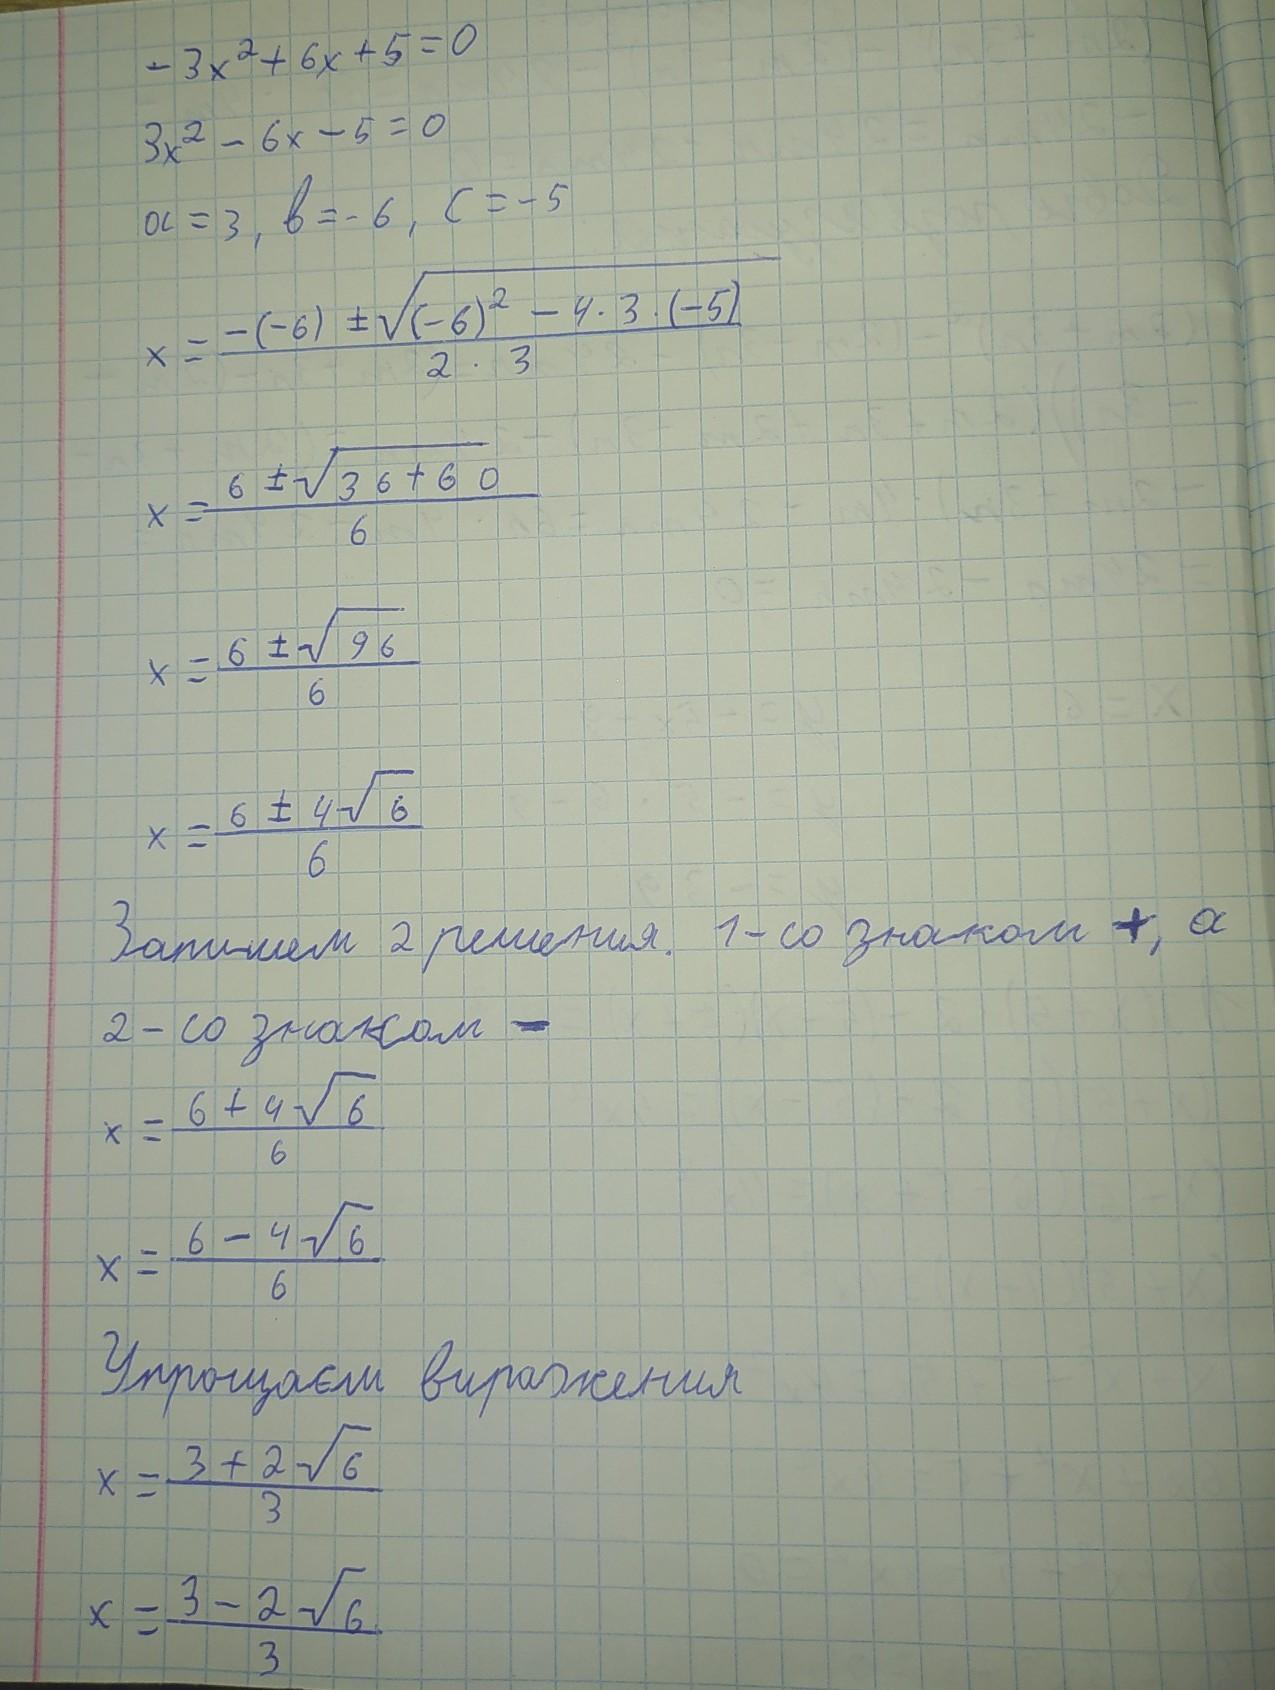 -3x²+6x+5=0
3x²-6x-5=0
a=3, b=-6, c=-5
x = (-(-6) ± √((-6)² - 4·3·(-5))) / (2·3)
x = (6 ± √(36+60)) / 6
x = (6 ± √96) / 6
x = (6 ± 4√6) / 6
Запишем 2 решения. 1-со знаком +, а
2-со знаком -
x = (6+4√6) / 6
x = (6-4√6) / 6
Упрощаєм виражения
x = (3+2√6) / 3
x = (3-2√6) / 3